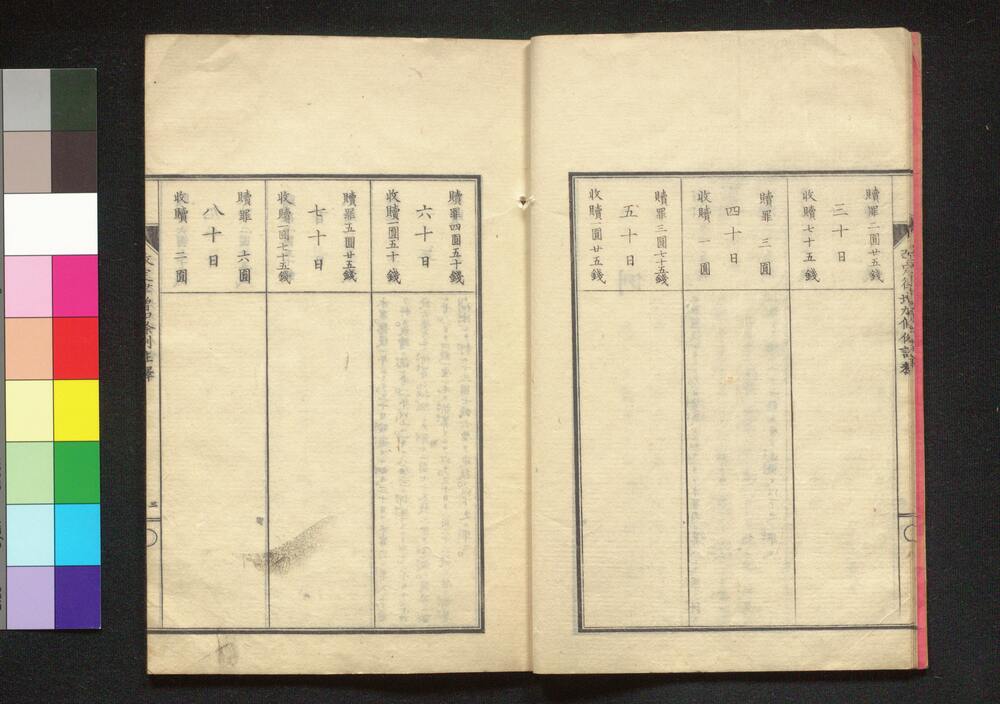 贖罪二圓廿五錢
三十日
收贖七十五錢
贖罪三圓
四十日
收贖一圓
贖罪三圓七十五錢
五十日
收贖一圓廿五錢
贖罪四圓五十錢
六十日
收贖一圓五十錢
贖罪五圓廿五錢
七十日
收贖一圓七十五錢
贖罪六圓
八十日
收贖二圓